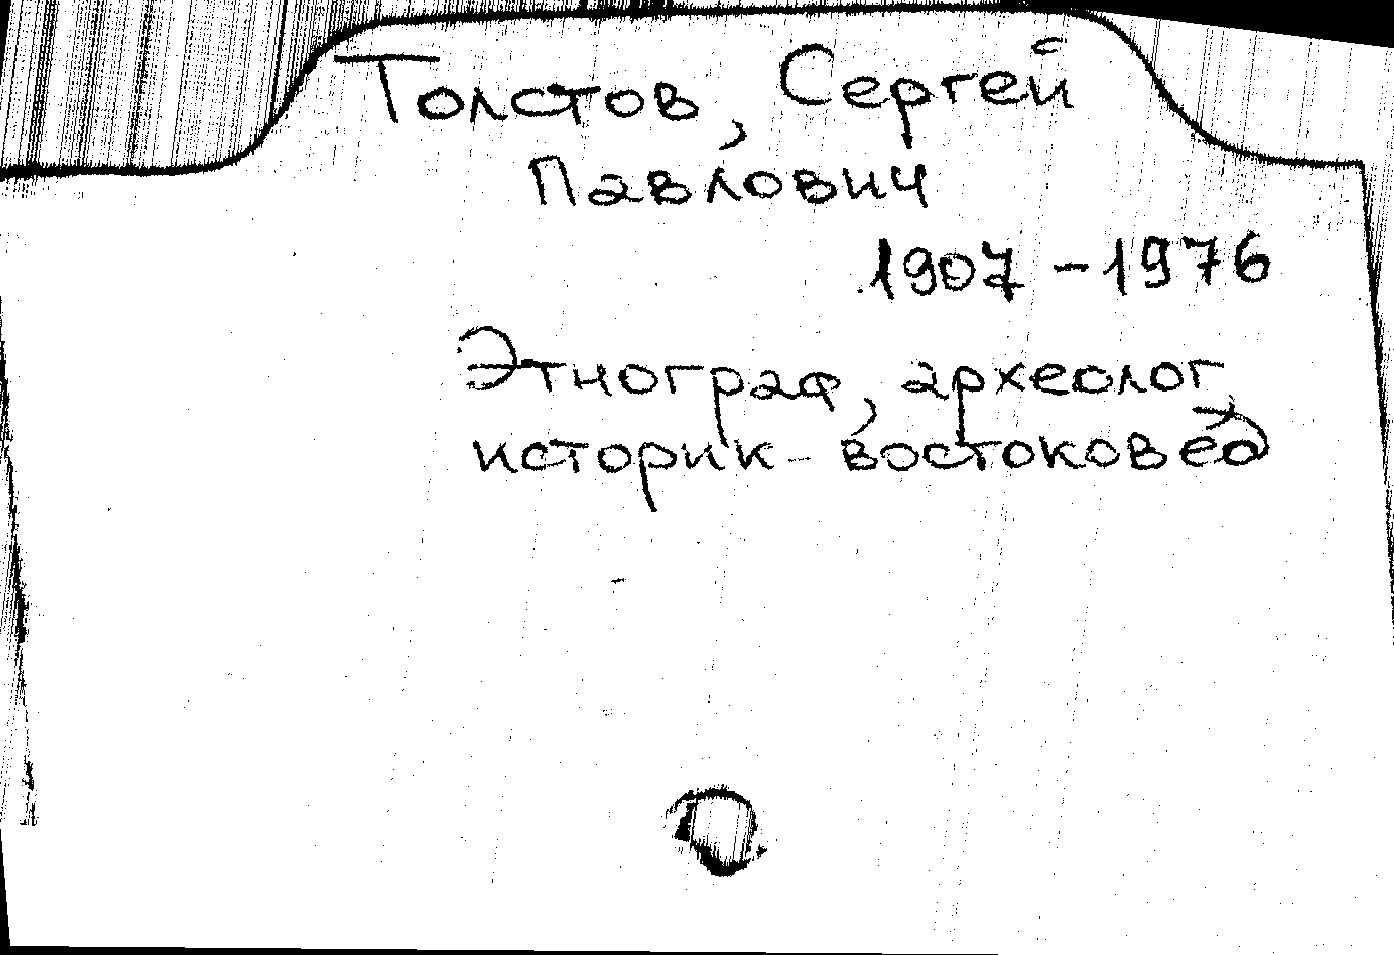 Толстов, Сергей
Павлович
1907 - 1976
Этнограф, археолог,
историк-востоковед